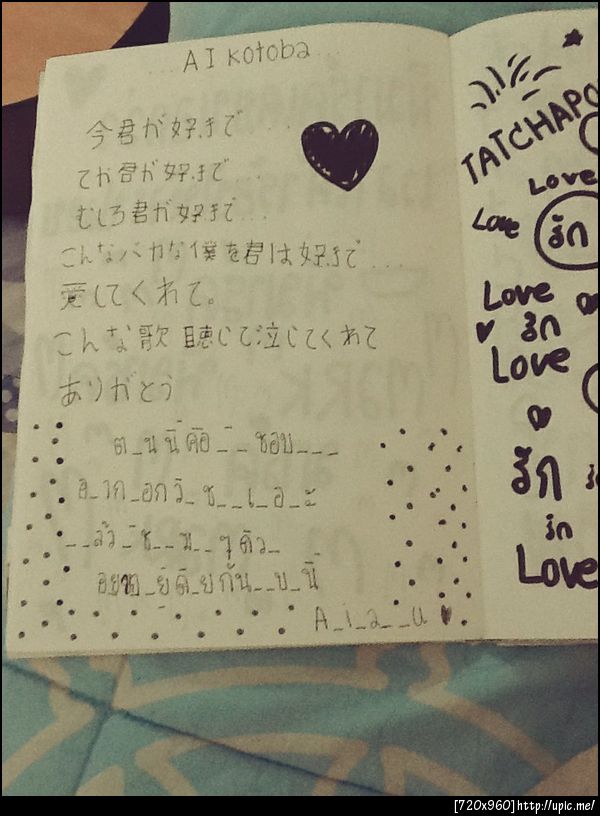 ...AI kotoba...
今君が好きで...
てか君が好きで...
むしろ君が好きで...
こんなバカな僕を君は好きで...
愛してくれて。
こんな歌聴いて泣いてくれて
ありがとう
ต_นนี้คือ_ _ชอบ_ _ _
อ_าก_อกว่_ช_ _เ_อ_ะ
A_i_a_ _u
TATCHAPO
Love
Love รัก
Love
รัก
Love
รัก
รัก
Love
[720x960]http://upic.me/